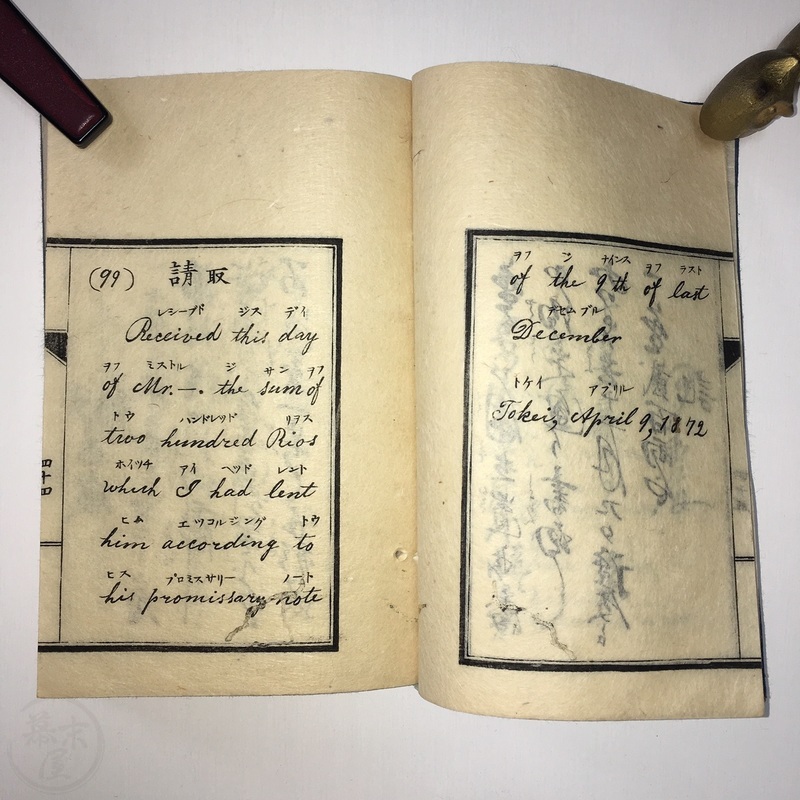 (99) 請取
レシーブド ジス デイ
Received this day
ヲフ ミストル ジ サン ヲフ
of Mr.—. the sum of
トウ ハンドレッド リヲス
two hundred Rios
ホイツチ アイ ヘッド レント
which I had lent
ヒム エツコルジング トウ
him according to
ヒス プロミスサリー ノート
his promissary note
ヲフ ジ ナインス ヲフ ラスト
of the 9th of last
デセムブル
December
トケイ アプリル
Tokei, April 9, 1872
幕末屋